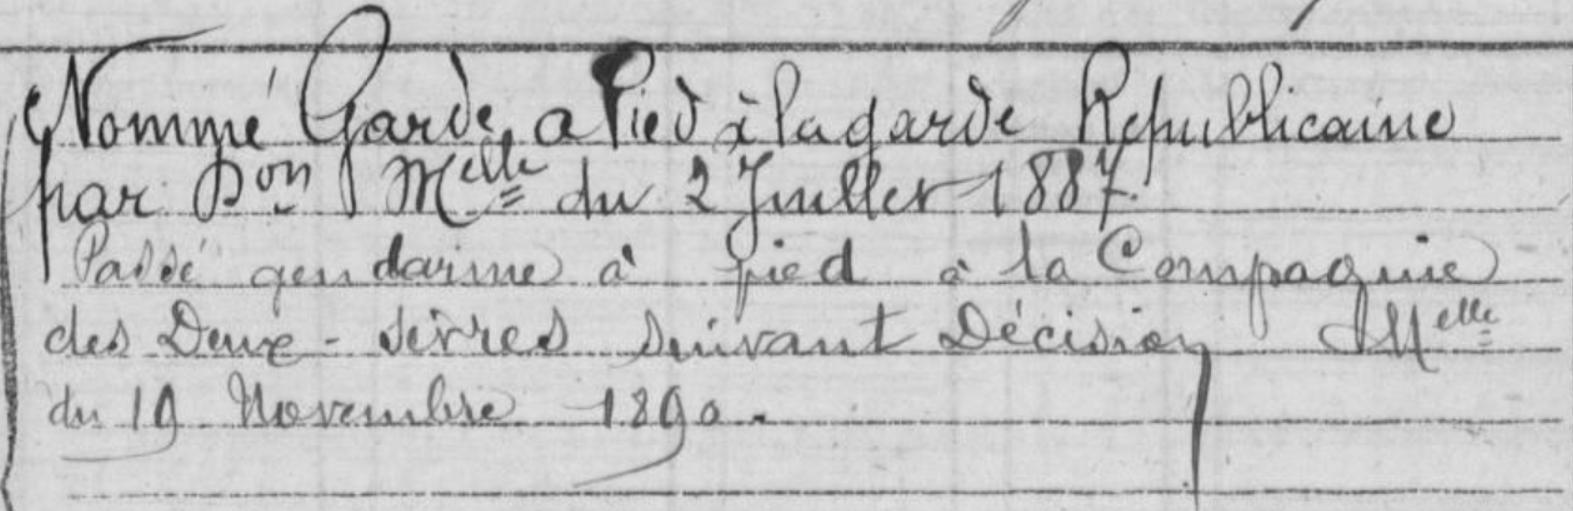 Nommé Garde a Pied à la garde Republicaine
par Don Melle du 2 Juillet 1887.
Passé gendarme à pied à la Compagnie
des Deux-Sèvres suivant Décision Melle
du 19 Novembre 1890.